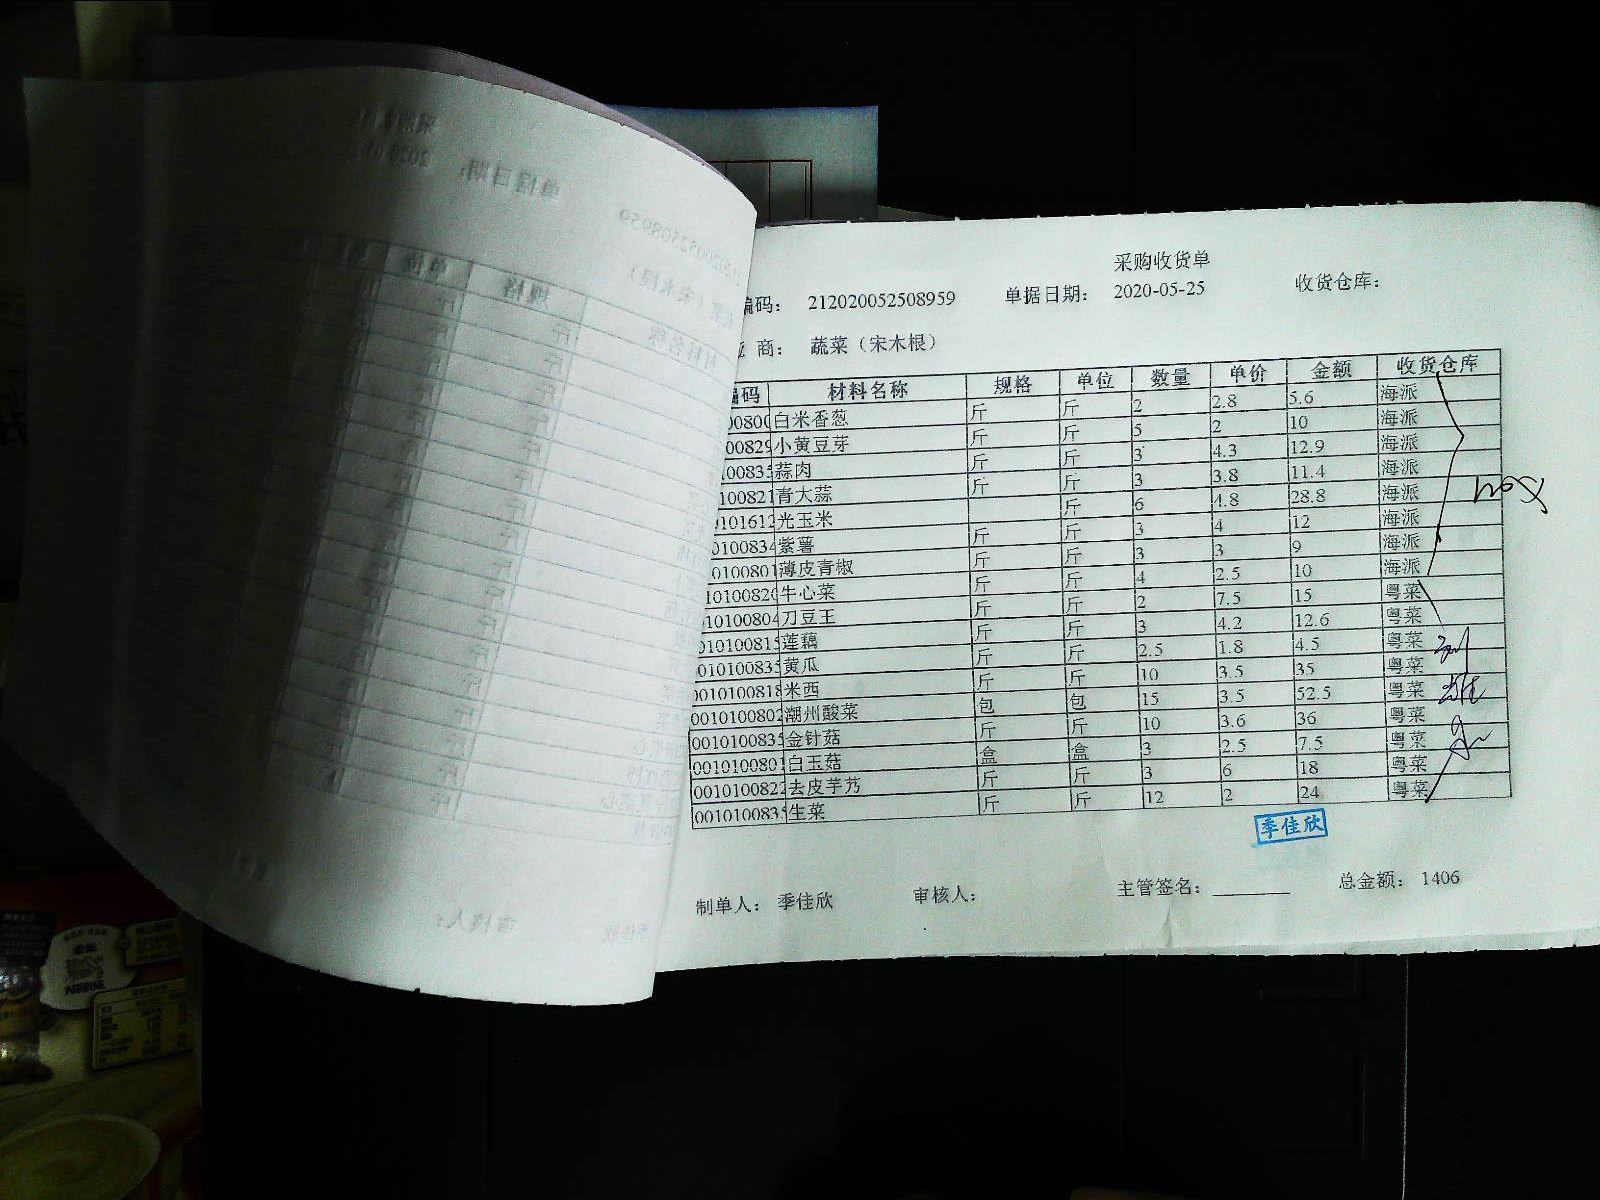 采购收货单
编码： 212020052508959 单据日期： 2020-05-25 收货仓库：
商： 蔬菜（宋木根）
编码 材料名称 规格 单位 数量 单价 金额 收货仓库
00800 白米香葱 斤 斤 2 2.8 5.6 海派
00829 小黄豆芽 斤 斤 5 2 10 海派
00835 蒜肉 斤 斤 3 4.3 12.9 海派
100821 青大蒜 斤 斤 3 3.8 11.4 海派
0101612 光玉米 斤 6 4.8 28.8 海派
0100834 紫薯 斤 斤 3 4 12 海派
0100801 薄皮青椒 斤 斤 3 3 9 海派
10100820 牛心菜 斤 斤 4 2.5 10 海派
10100804 刀豆王 斤 斤 2 7.5 15 粤菜
010100815 莲藕 斤 斤 3 4.2 12.6 粤菜
010100835 黄瓜 斤 斤 2.5 1.8 4.5 粤菜
0010100818 米西 斤 斤 10 3.5 35 粤菜
0010100802 潮州酸菜 包 包 15 3.5 52.5 粤菜
0010100835 金针菇 斤 斤 10 3.6 36 粤菜
0010100801 白玉菇 盒 盒 3 2.5 7.5 粤菜
0010100822 去皮芋艿 斤 斤 3 6 18 粤菜
0010100835 生菜 斤 斤 12 2 24 粤菜
季佳欣
制单人： 季佳欣 审核人： 主管签名： 总金额： 1406